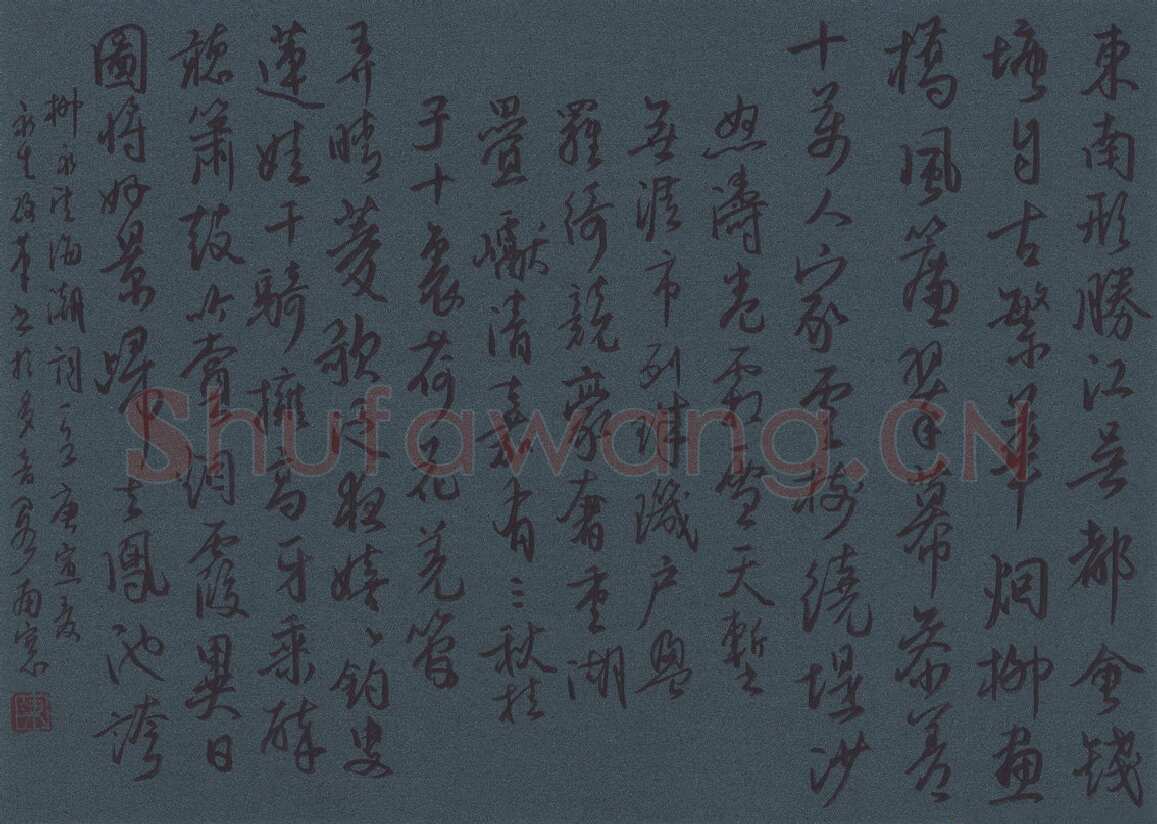 東南形勝江吳都會錢
塘自古繁華烟柳畫
橋風簾翠幕參差
十萬人家雲樹繞堤沙
怒濤卷霜雪天塹
無涯市列珠璣户盈
羅綺競豪奢重湖
疊巘清嘉有三秋桂
子十裏荷花羌管
弄晴菱歌泛夜嬉嬉釣叟
蓮娃千騎擁高牙乘醉
聽簫鼓吟賞烟霞異日
圖將好景歸去鳳池誇
柳永望海潮詞一首庚寅夏
永生 書於 南窗
Shufawang.CN